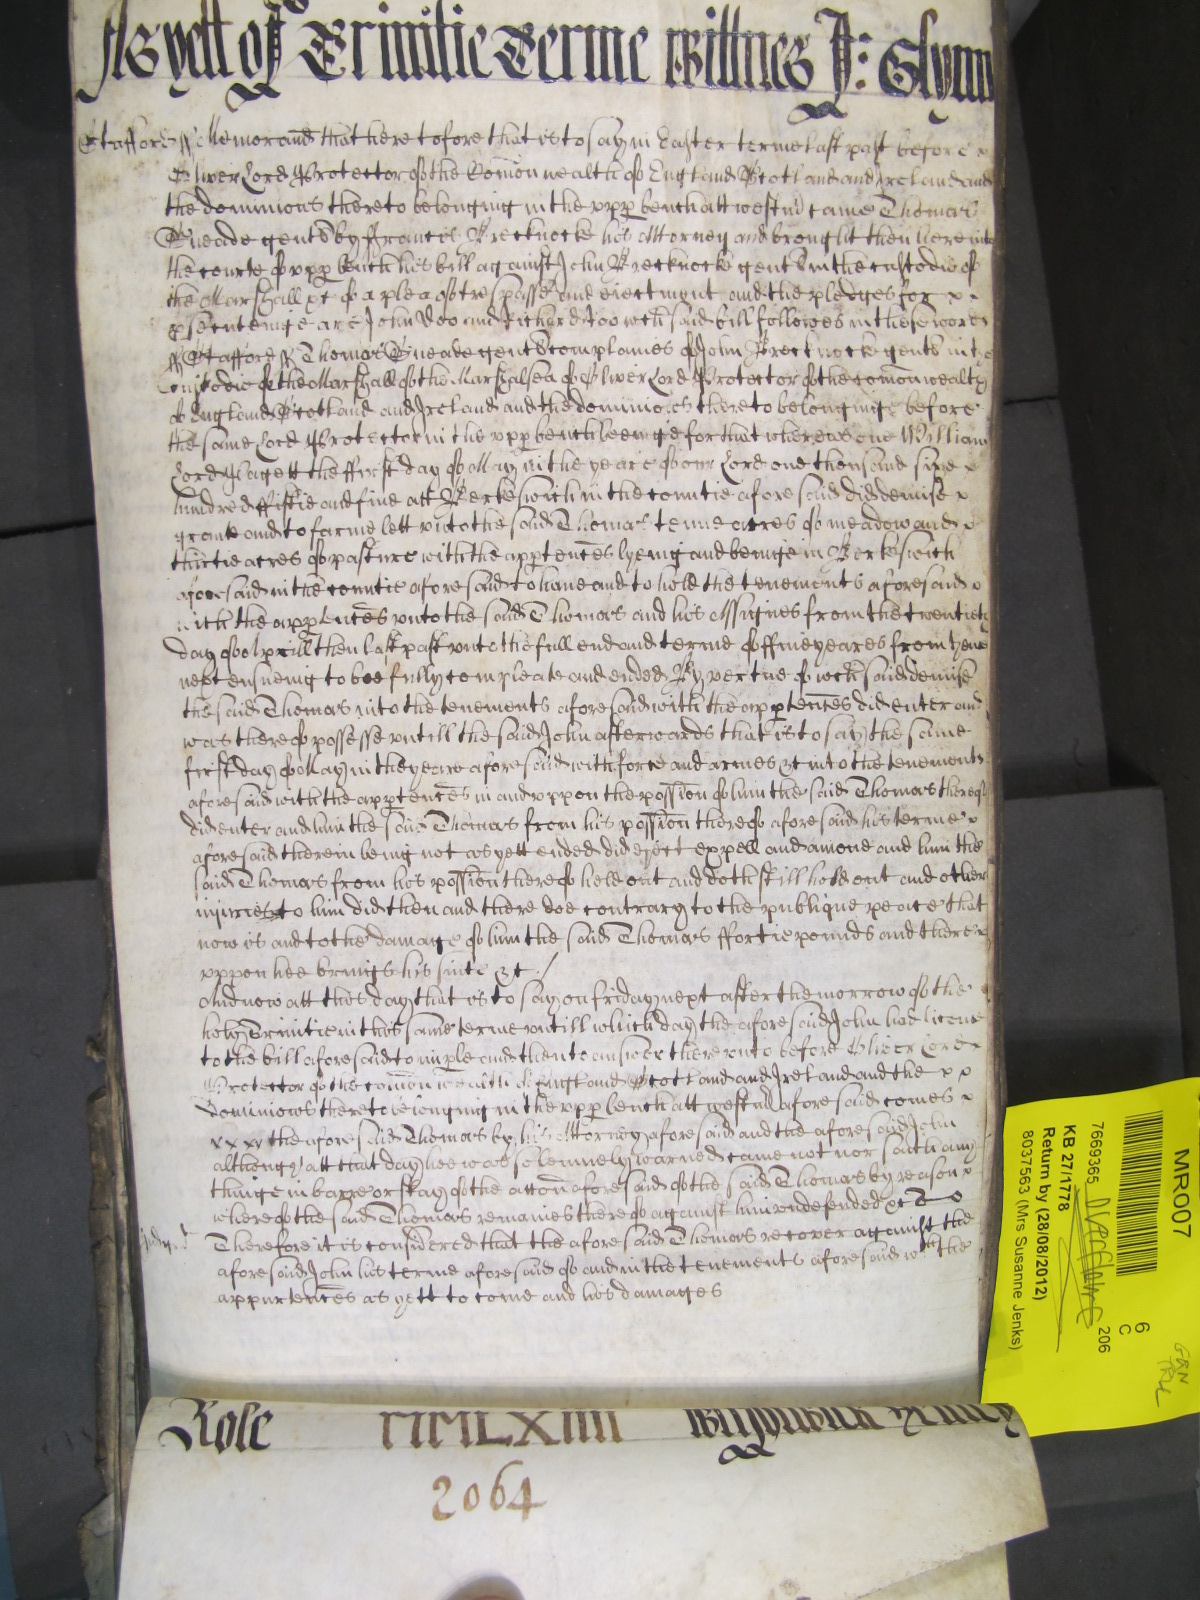 As yett of Trinitie Terme Wittnes J: Glynn
Stafford ss Memorand that heretofore that is to say in Easter terme last past before x
Oliver Lord Protector of the Comōn wealth of England Scotland and Ireland and
the dominions thereto belonging in the vpp bench att westm̄ came Thomas
Sneade gent by Francis Brecknocke his Attorney and brought then here into
the courte of vpp bench his bill against John Brecknocke gent in the custodie of
the Marshall &c of a plea of trespasse and eiectment and the pledges for x x
psecuteinge are John Doo and Richard Roo wch said bill followes in these words
ss Stafford ss Thomas Sneade gent complaines of John Brecknock gent in the
Custodie of the Marshall of the Marshalsea of Oliver Lord Protector of the comōn wealth
of England Scotland and Ireland and the dominions thereto belonginge before
the same Lord Protector in the vpp bench beeinge for that whereas one William
Lord Pagett the ffirst day of May in the yeare of our Lord one thousand sixe x
hundred ffiftie and fiue att Berkswich in the countie aforesaid did demise x
graunt and to farme lett vnto the said Thomas tenne acres of meadow and x
thirtie acres of pasture with the apptencēs lyeing and beinge in Berkswich
aforesaid in the countie aforesaid to haue and to hold the tenements aforesaid x
with the apptencēs vnto the said Thomas and his Assignes from the twentieth
day of Aprill then last past vnto the full end and terme of ffiue yeares from thence
next ensueing to bee fully compleate and ended By vertue of wch said demise
the said Thomas into the tenements aforesaid with the apptencēs did enter and
was thereof possesse vntill the said John afterwards that is to say the same
first day of May in the yeare aforesaid with force and armes &c into the tenements
aforesaid with the apptencēs in and vppon the possīon of him the said Thomas thereof
did enter and him the said Thomas from his possīon thereof aforesaid his terme x
aforesaid therein being not as yett ended did eject expell and amoue and him the
said Thomas from his possīon thereof held out and doth still hold out and other
iniuries to him did then and there doe contrary to the publique peace that
now is and to the damage of him the said Thomas ffortie pounds and there x
vppon hee brings his suite &c /
And now att this day that is to say on friday next after the morrow of the
holy Trinitie in this same terme vntill which day the aforesaid John had licence
to the bill aforesaid to imple and then to answer there vnto before Oliver Lord x
Protector of the comōn wealth of England Scotland and Ireland and the x x
Dominions thereto belonging in the vpp bench att westm̄ aforesaid comes x
x x xx the aforesaid Thomas by his Attorney aforesaid and the aforesaid John
althoug att that day hee was solemnely warned came not nor saith any
thinge in barre or stay of the accōn aforesaid of the said Thomas by reason x
whereof the said Thomas remaines thereof against him vndefended &c
Therefore it is considered that the aforesaid Thomas recover against the
aforesaid John his terme aforesaid of and in the tenements aforesaid wth the
appurtencēs as yett to come and his damages
Role MMLXIIII
2064
MR007
6
C
206
7669365
KB 27/1778
Return by (28/08/2012)
8037563 (Mrs Susanne Jenks)